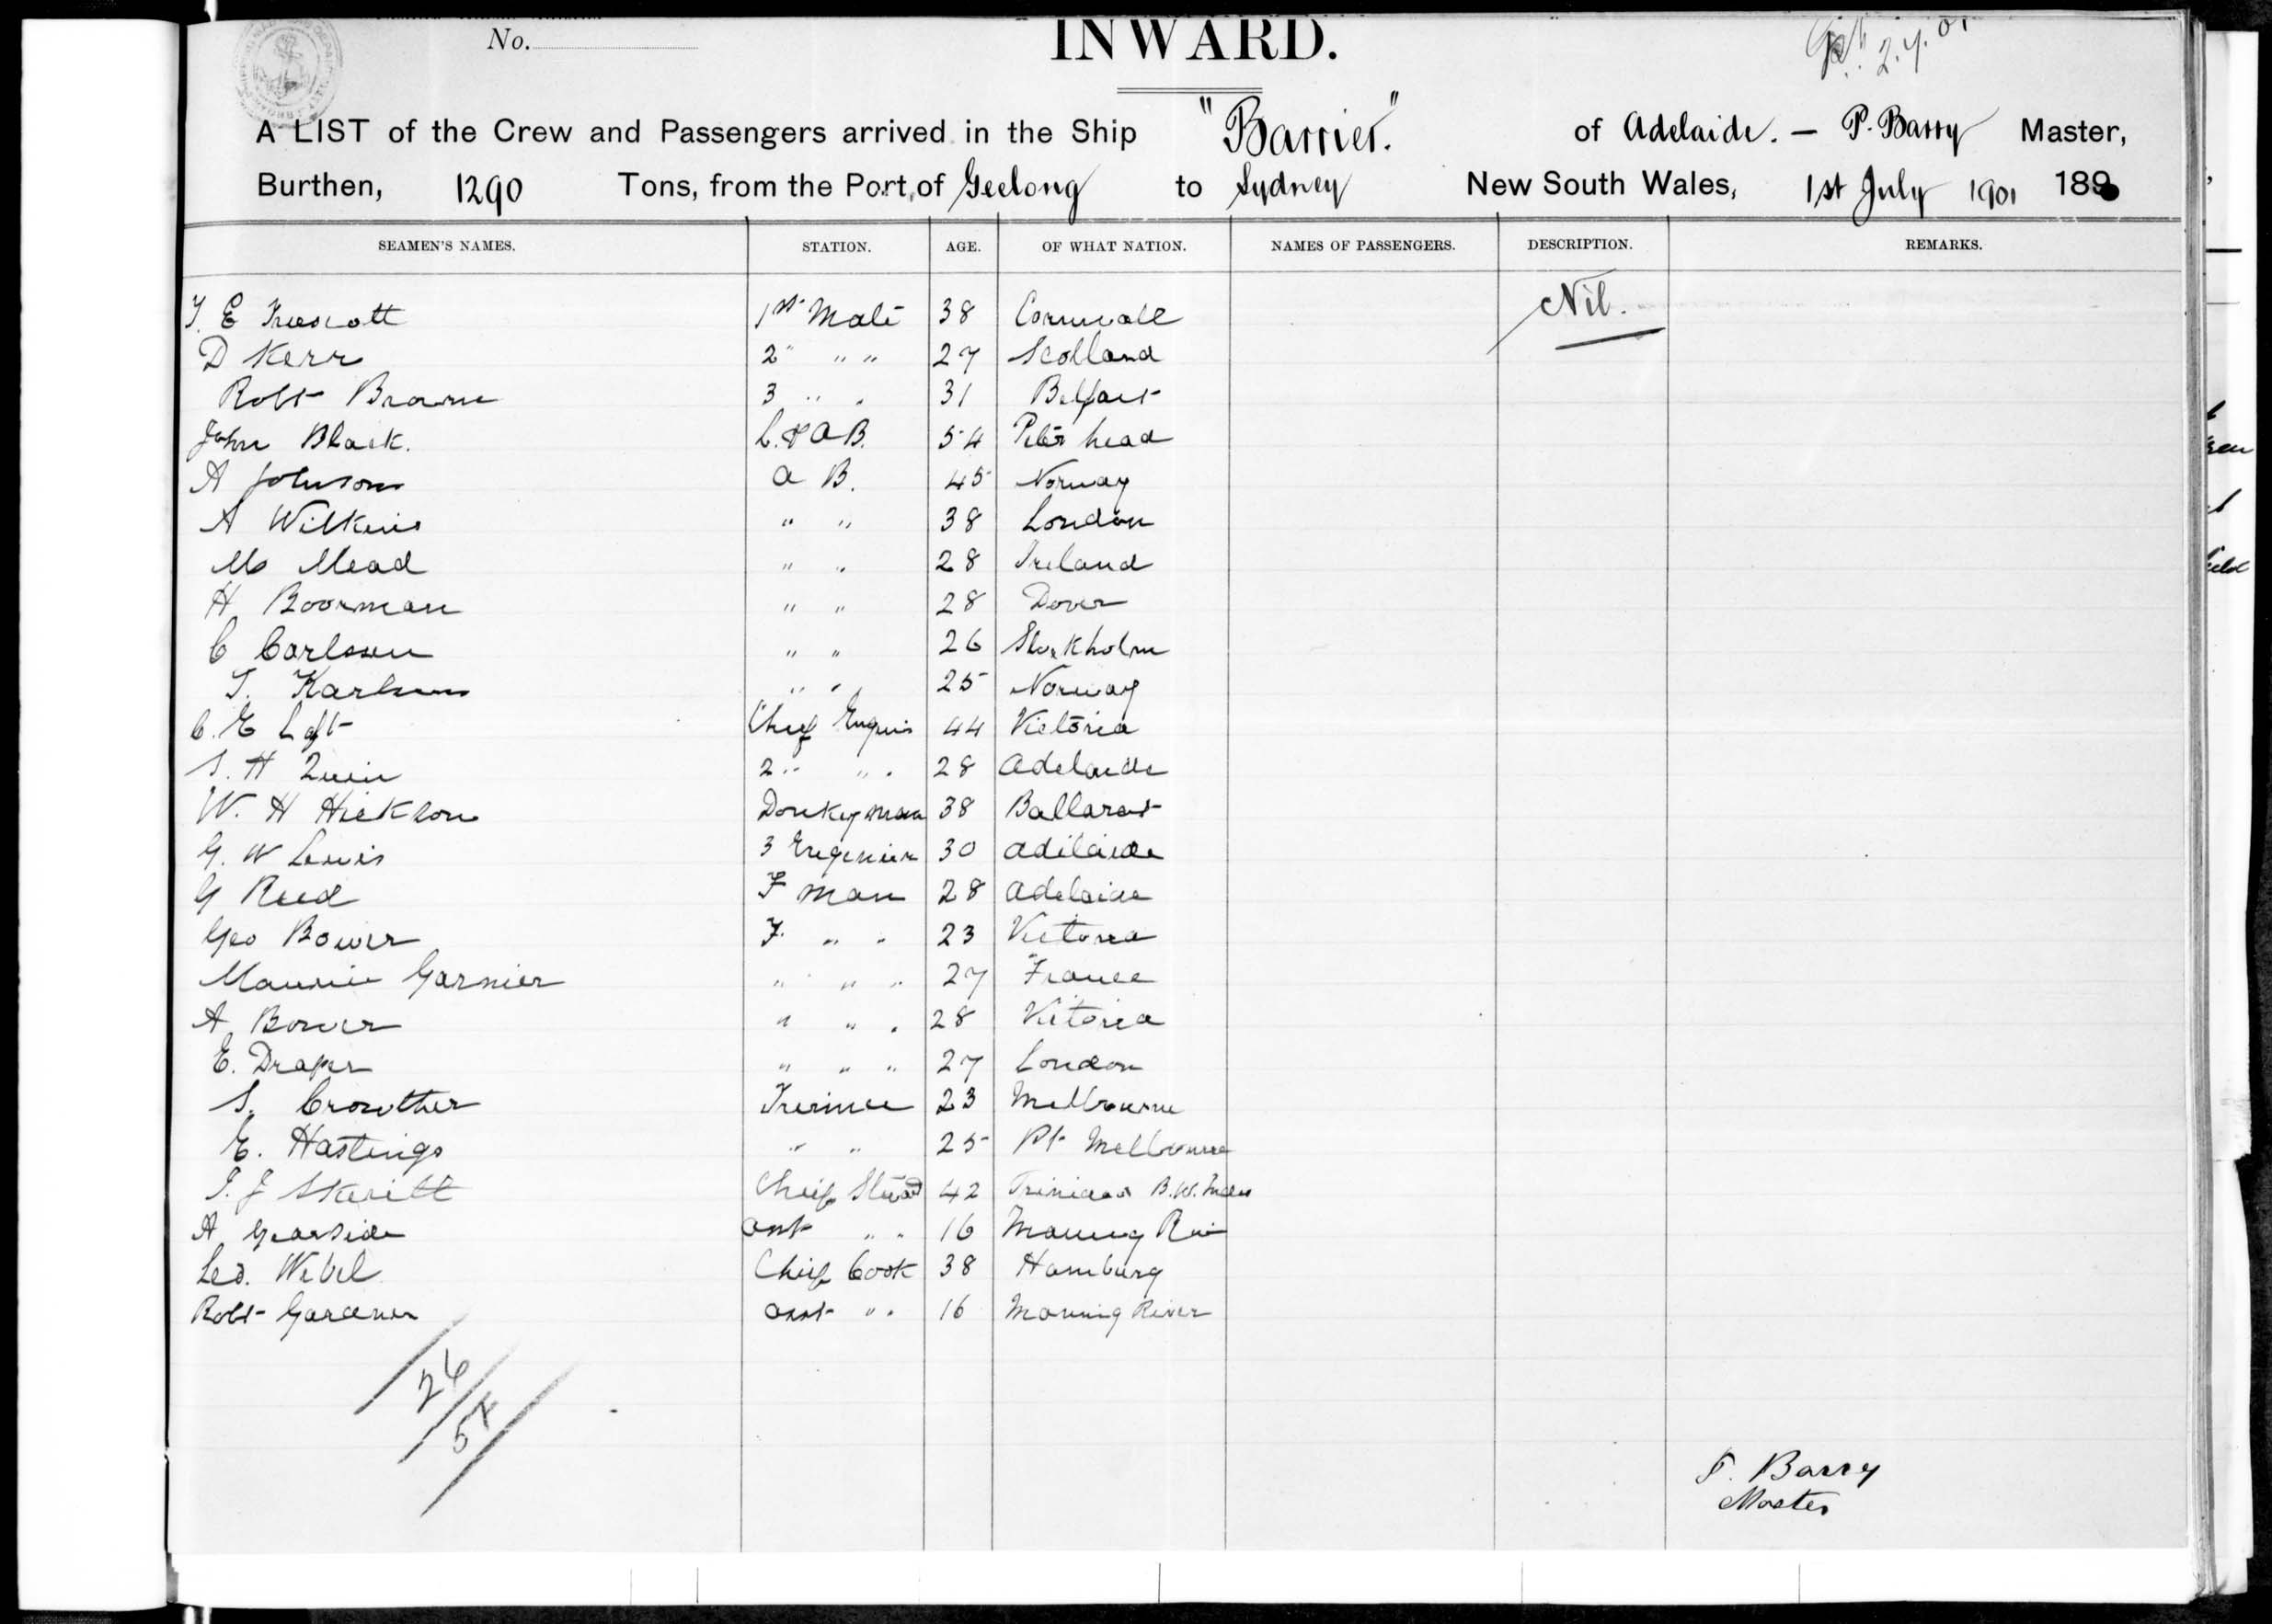 No.
INWARD.
2.7.01
A LIST of the Crew and Passengers arrived in the Ship "Barrier." of Adelaide. — P. Barry Master,
Burthen, 1290 Tons, from the Port of Geelong to Sydney New South Wales, 1st July 1901 189
SEAMEN'S NAMES. STATION. AGE. OF WHAT NATION. NAMES OF PASSENGERS. DESCRIPTION. REMARKS.
Nil.
T. E Trescott 1st Mate 38 Cornwall
D Kerr 2 " " " 27 Scotland
Robt Browne 3 " " 31 Belfast
John Black. L. & A B. 54 Peterhead
A Johnson A B. 45 Norway
A Wilkins " " 38 London
M Mead " " 28 Ireland
H. Boorman " " 28 Dover
C Carlsson " " 26 Stockholm
T. Karlsson " " 25 Norway
C. E Loft Chief Engin 44 Victoria
S. H Quin 2 " " 28 Adelaide
W. H Hickson Donkeyman 38 Ballarat
G. W Lewis 3 Engenier 30 Adelaide
G Reed F man 28 Adelaide
Geo Bower F. " " 23 Victoria
Maurice Garnier " " " 27 France
A. Bower " " " 28 Vitoria
E. Draper " " " 27 London
S. Crowther Trimmer 23 Melbourne
E. Hastings " " 25 Pt Melbourne
J. J Skeritt Chief Steward 42 Trinidad B.W. Indies
A. Gearside asst " " 16 Manning River
Leo. Webel Chief Cook 38 Hamburg
Robt Gardener asst " " 16 Manning River
26
54
P. Barry
Master